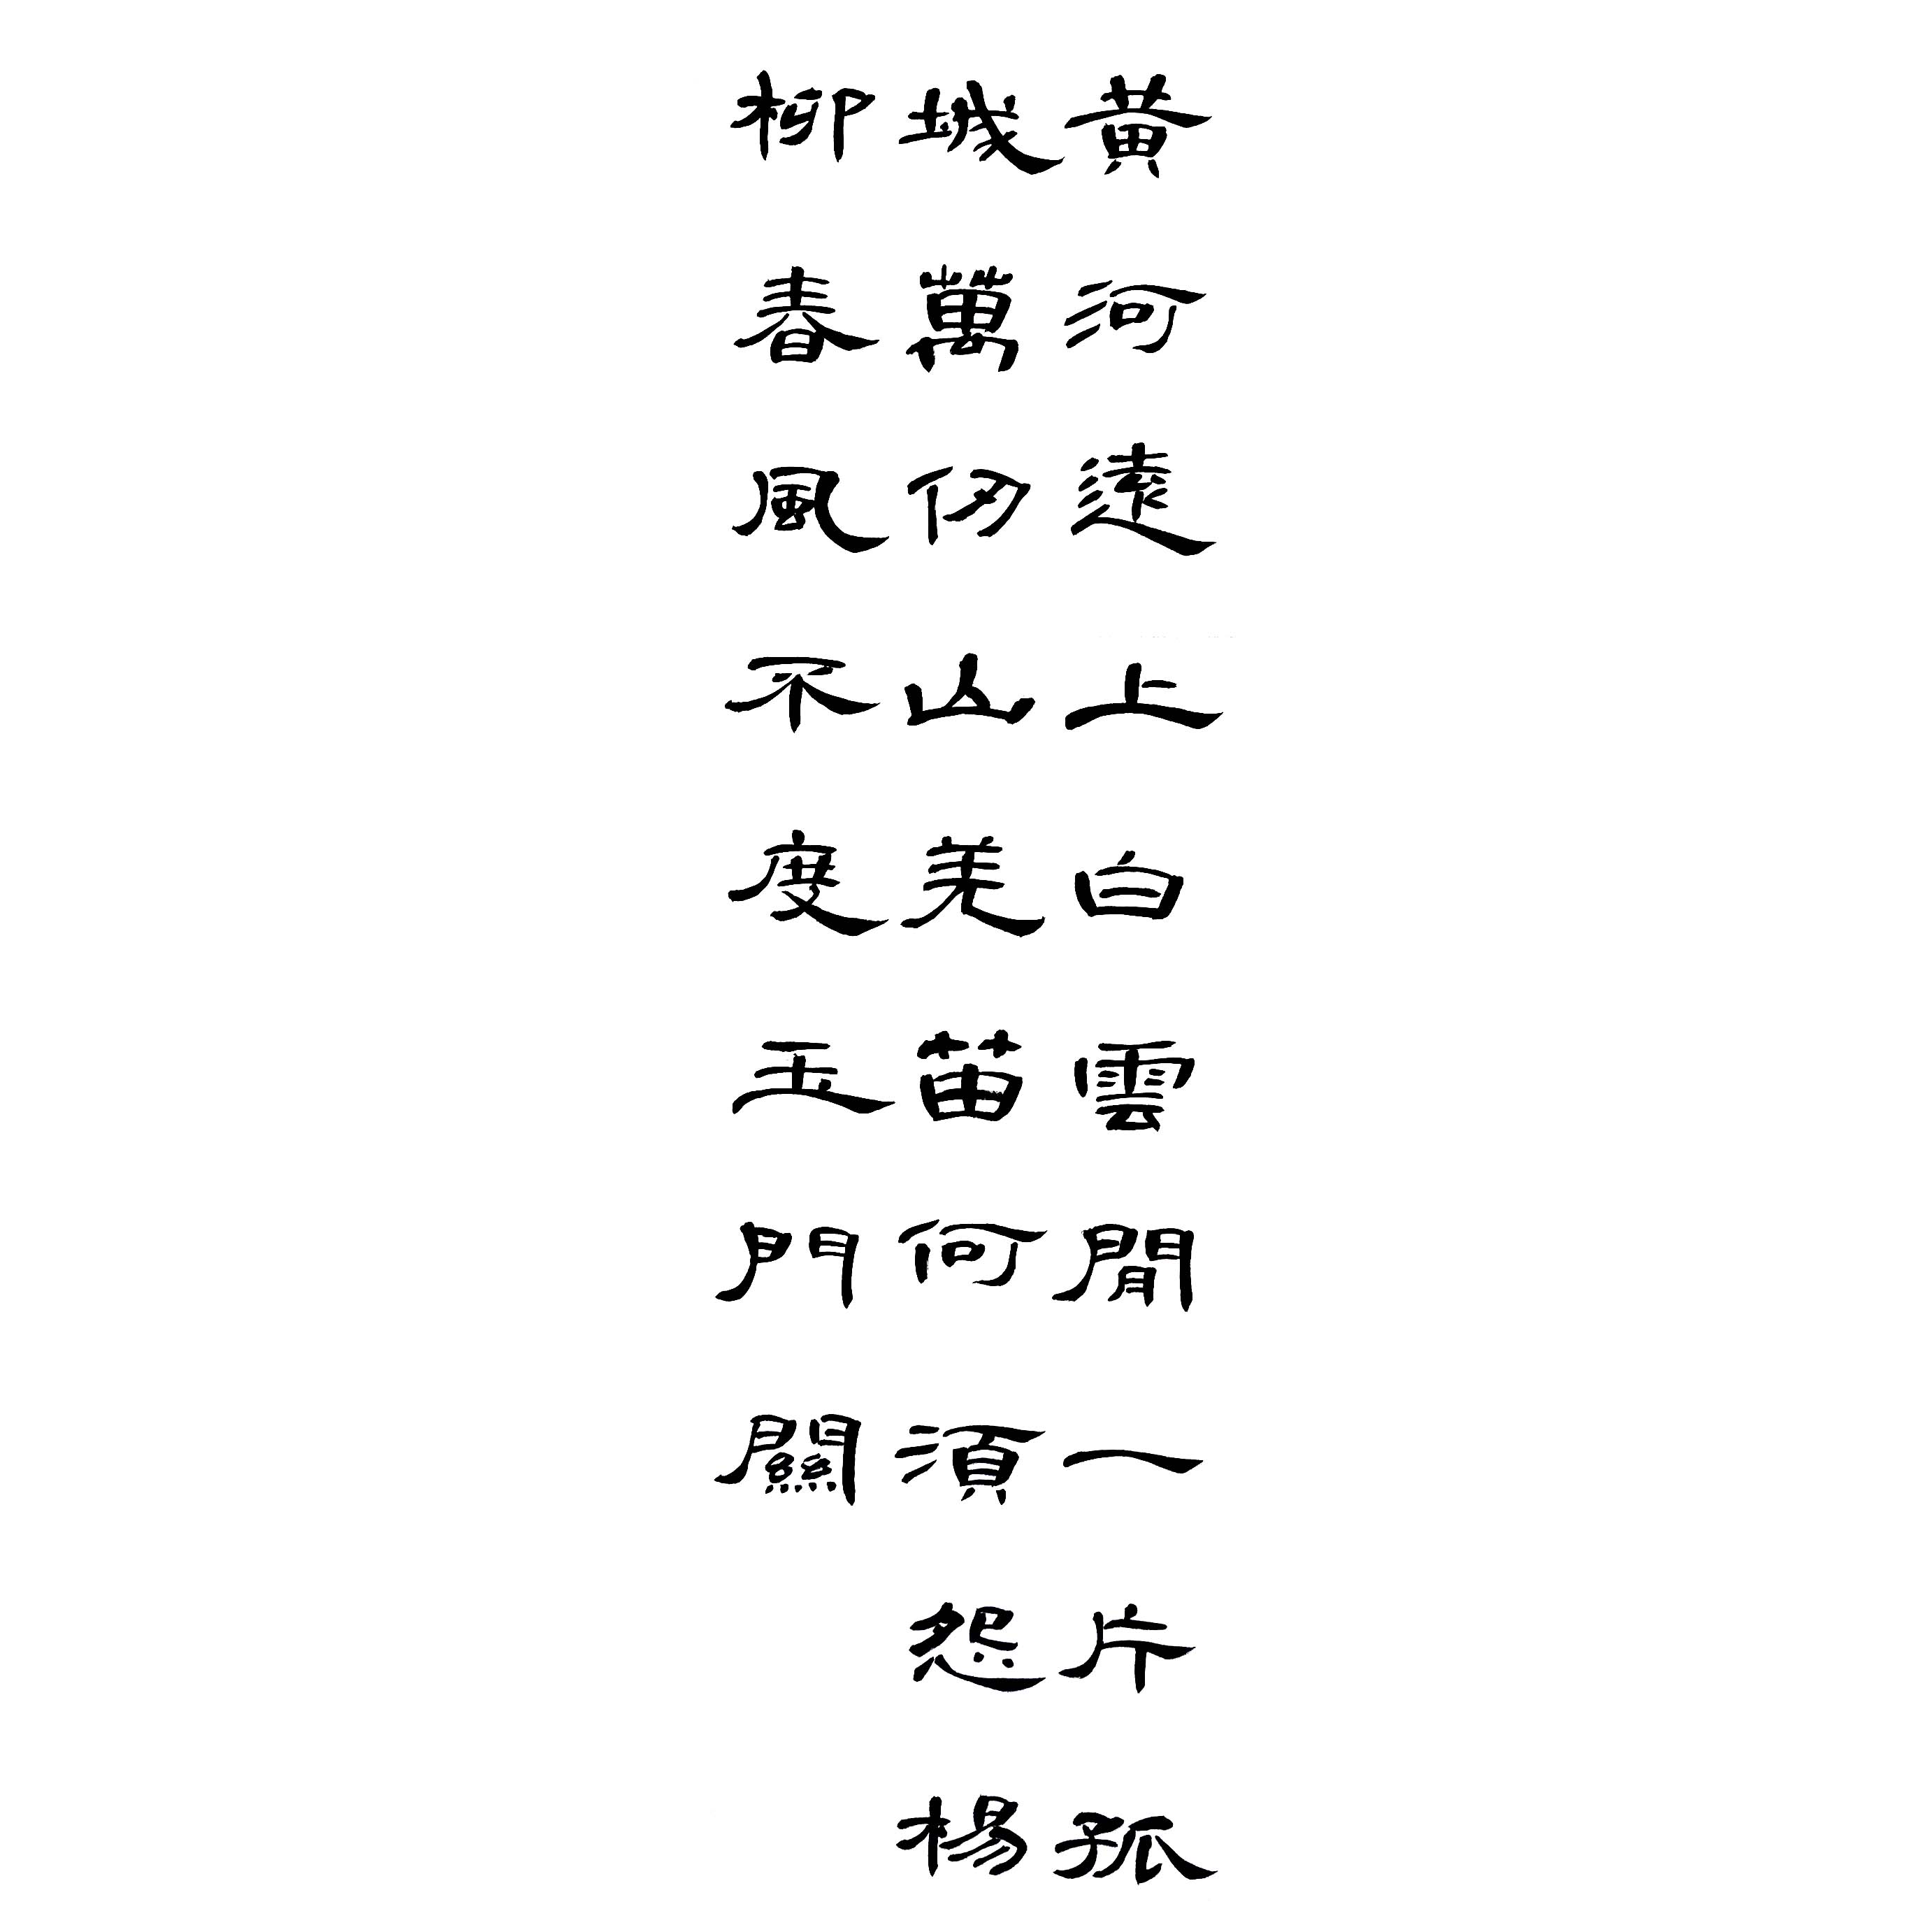 黄河遠上白雲閒一片孤
城萬仞山羌笛何須怨楊
柳春風不度玉門關